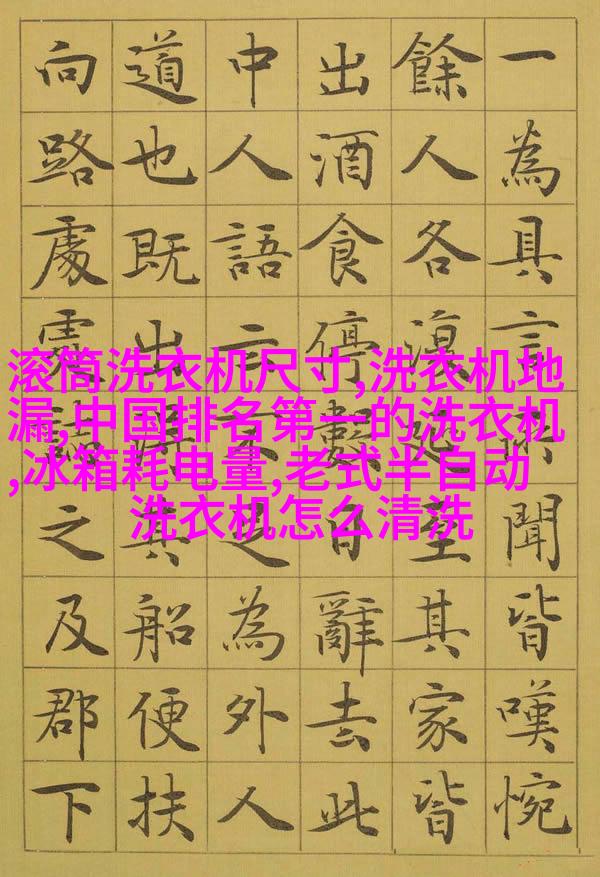 一為具言所聞皆嘆惋
餘人各復延至其家皆
出酒食停數日辭去此
中人語云不足為外人
道也既出得其船便扶
向路處處誌之及郡下
滚筒洗衣机尺寸,洗衣机地
漏,中国排名第一的洗衣机
,冰箱耗电量,老式半自动
洗衣机怎么清洗